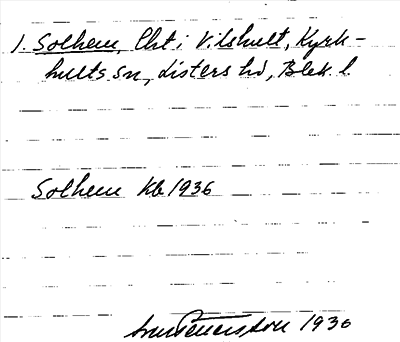 1. Solhem, Lht i Vilshult, Kyrk-
hults sn, Listers hd, Blek. l.
Solhem Kb 1936
1936